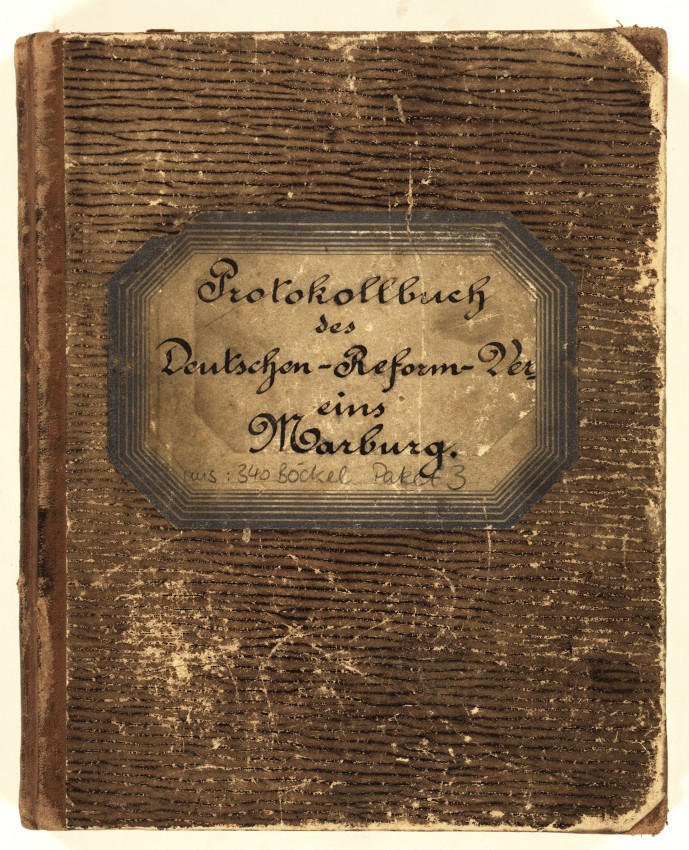 Protokollbuch
des
Deutschen-Reform-Ver-
eins
Marburg.
aus: 340 Böckel Paket 3